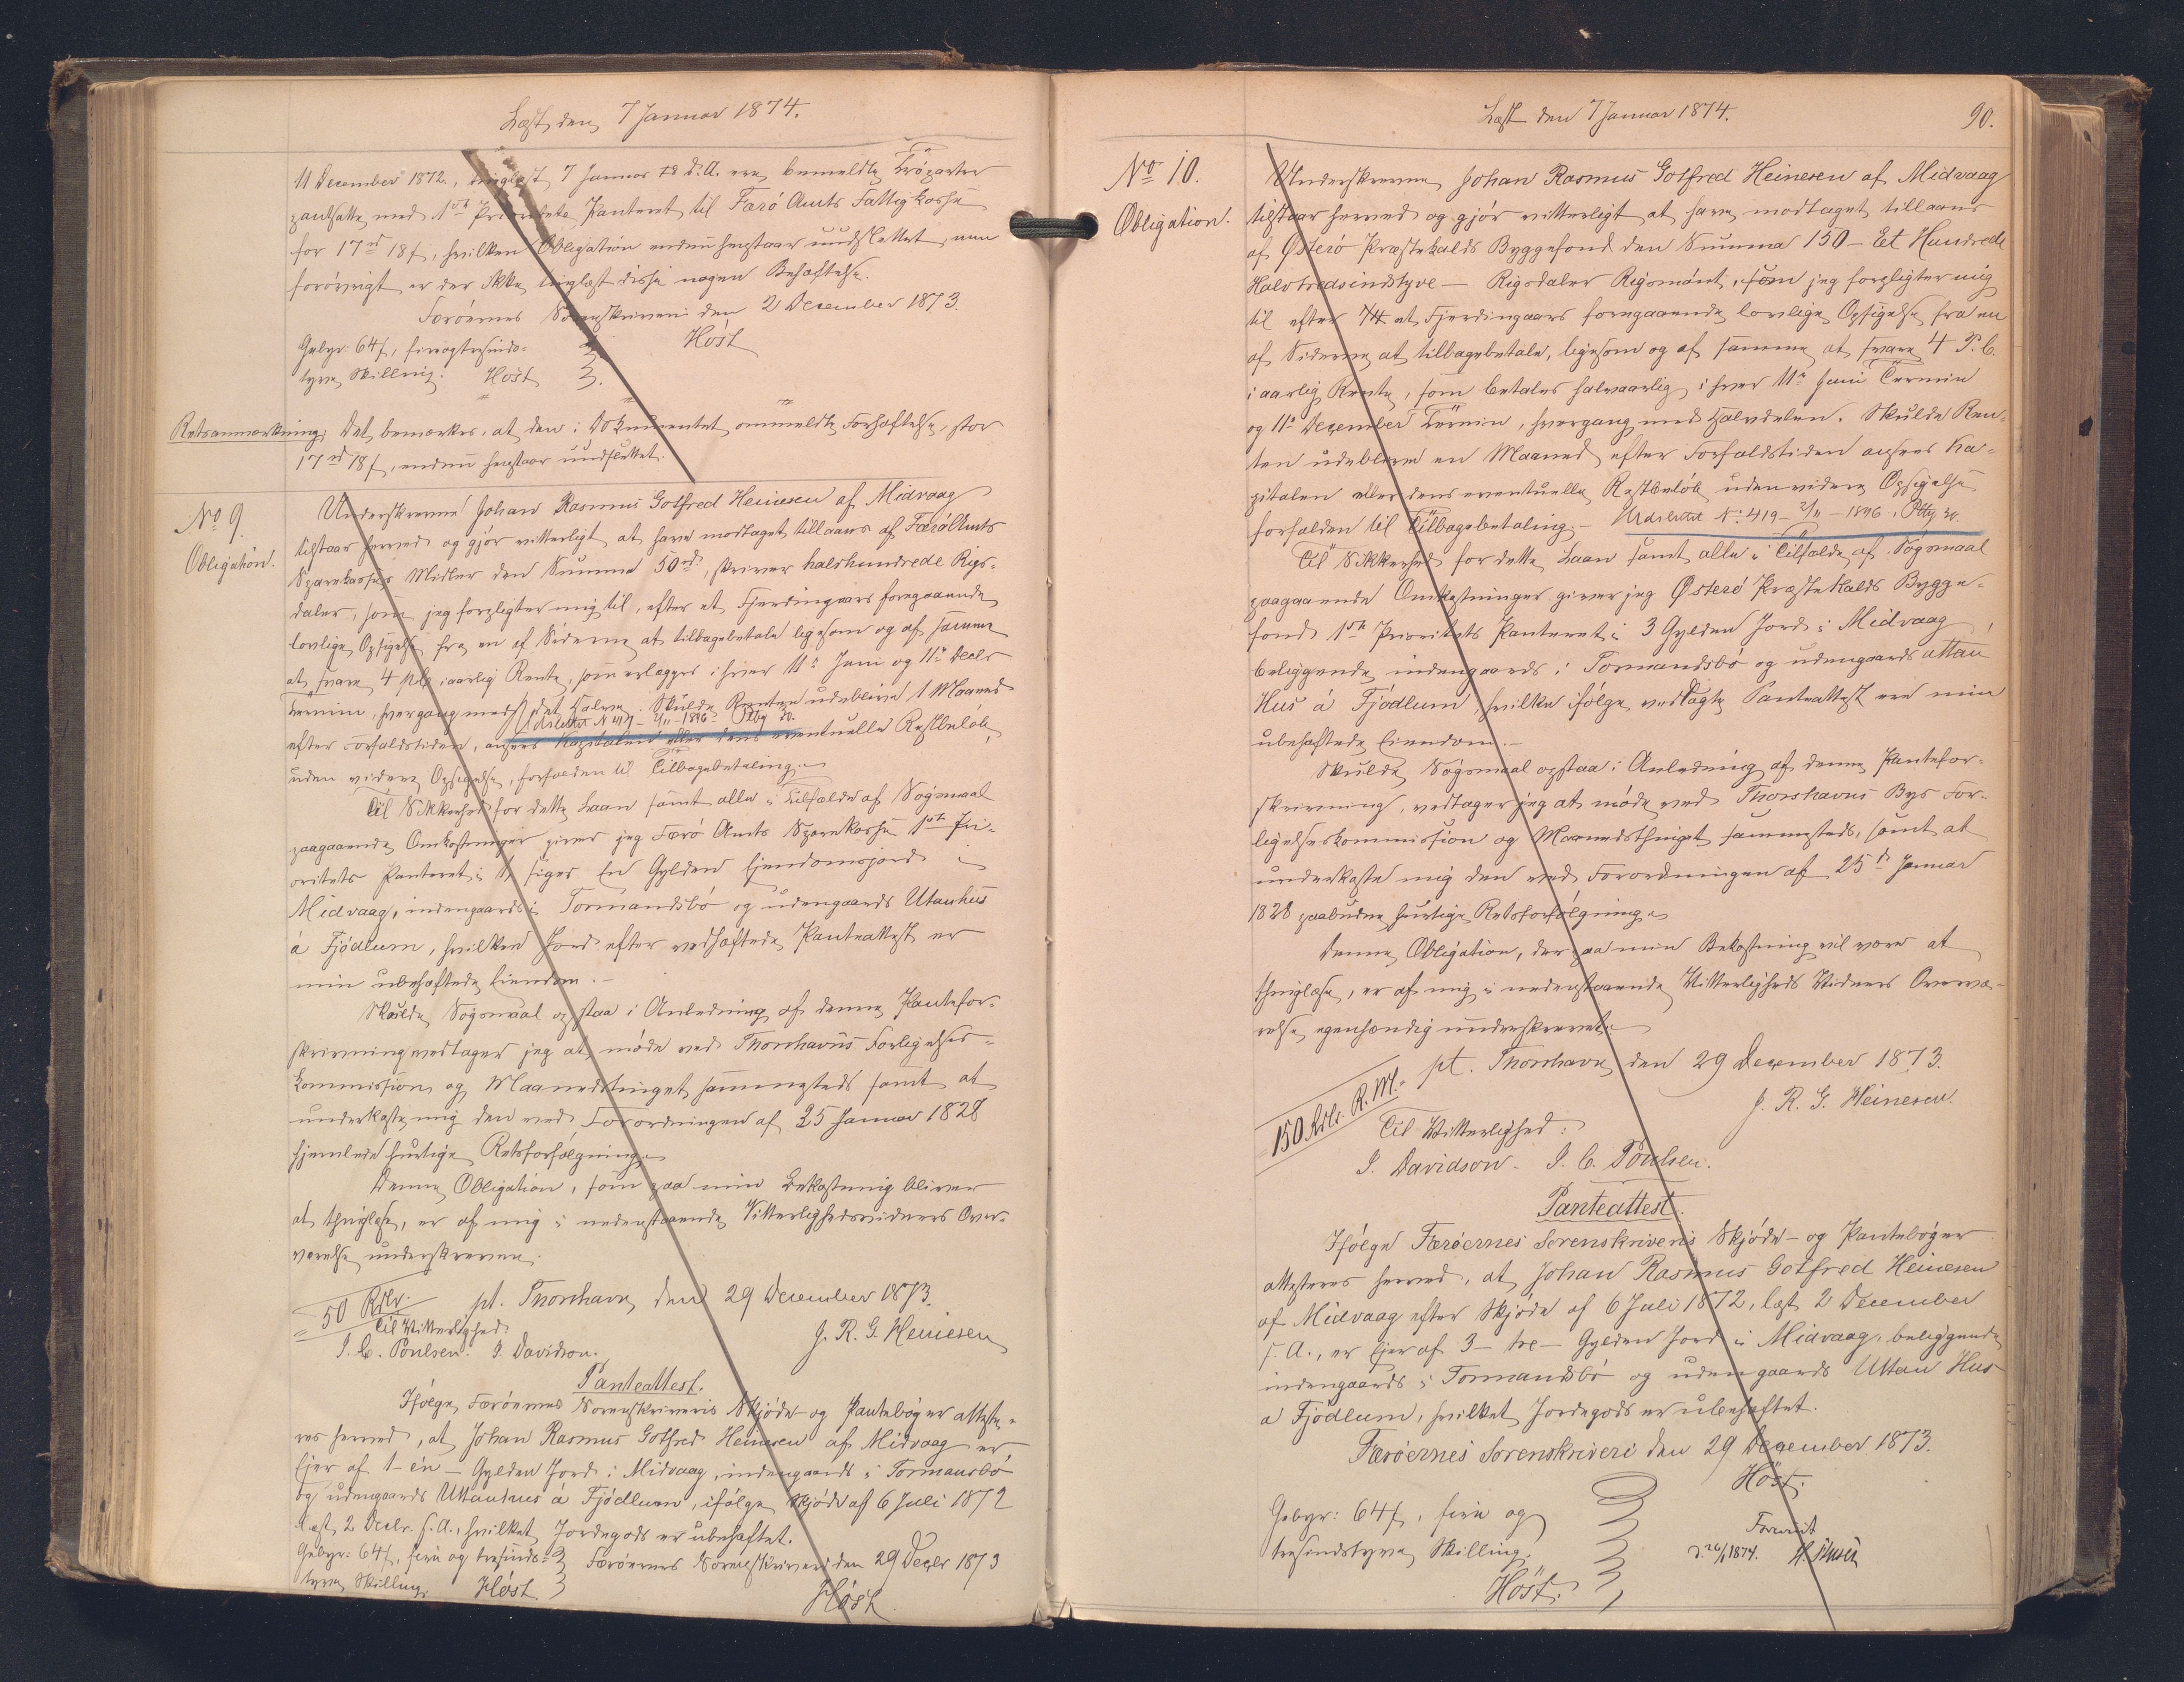 Læst den 7 Januar 1874.
11 December 1872., tinglæst 7 Januar d. A. ere bemeldte
pantsatte med 1ste Prioritets Panteret til Færö Amts Fattigkasse
for 17 rd 18 s, hvilken Obligation endnu henstaar uudslettet, men
forövrigt er der ikke tinglæst disse nogen Behæftelse.
Færöernes Sorenskriveri den 2 December 1873.
Höst
Gebyr: 64 s, fire og tresinds-
tyve Skilling. Höst
Retsanmærkning: Det bemærkes, at den i Dokumentet ommeldte Forhæftelse, stor
17 rd 18 s, endnu henstaar uudslettet.
No 9.
Obligation.
Underskrevne Johan Rasmus Gotfred Heinesen af Midvaag
tilstaar herved og gjör vitterligt at have modtaget tillaans af Færö Amts
Sparekasses Midler den Summa 50 rd, skriver halvhundrede Rigs-
daler, som jeg forpligter mig til, efter et Fjerdingaars foregaaende
lovlige Opsigelse fra en af Siderne at tilbagebetale ligesom og af samme
at svare 4 pCt aarlig Rente, som erlægges i hver 11te Juni og 11te Decbr
Termin, hvergang med det Halve. Skulde Renten udeblive 1 Maaned
Udslettet No 417 - 2/11 - 1896
efter Forfaldstiden, ansees Kapitalen eller dens eventuelle Restbelöb,
uden videre Opsigelse, forfalden til Tilbagebetaling.
Til Sikkerhed for dette Laan samt alle i Tilfælde af Sögsmaal
paagaaende Omkostninger giver jeg Færö Amts Sparekasse 1ste Pri-
oritets Panteret i 1, siger En Gylden Ejendomsjord i
Midvaag, indengaards i Tormandsbö og udengaards Utanhus
á Fjödlum, hvilken Jord efter vedhæftede Panteattest er
min ubehæftede Eiendom.-
Skulde Sögsmaal opstaa i Anledning af denne Pantefor-
skrivning vedtager jeg at möde ved Thorshavns Forligelses-
kommission og Maanedstinget sammesteds samt at
underkaste mig den ved Forordningen af 25 Januar 1828
hjemlede hurtige Retsforfölgning.
Denne Obligation, som paa min Bekostning bliver
at thinglæse, er af mig i nedenstaaende Vitterlighedsvidners Over-
værelse underskreven.
50 Rdlr.
pt. Thorshavn den 29 December 1873.
Til Vitterlighed:
J. R. G. Heinesen
J. C. Poulsen. J. Davidson.
Panteattest.
Ifölge Færöernes Sorenskriveris Skjöde- og Pantebög er atteste-
res herved, at Johan Rasmus Gotfred Heinesen af Midvaag er
Ejer af 1 - én - Gylden Jord i Midvaag, indengaards i Tormansbö
og udengaards Uttanhus á Fjödlum, ifölge Skjöde af 6 Juli 1872
læst 2 Decbr. s. A., hvilket Jordegods er ubehæftet.
Gebyr: 64 s, fire og tresinds-
tyve Skilling. Höst.
Færöernes Sorenskriveri den 29 Decbr 1873
Höst
Læst den 7 Januar 1874.
90.
No 10.
Obligation.
Underskrevne Johan Rasmus Gotfred Heinesen af Midvaag
tilstaar herved og gjör vitterligt at have modtaget tillaans
af Österö Præstekalds Byggefond den Summa 150 - Et Hundrede
Halvtredsindstyve - Rigsdaler Rigsmönt, som jeg forpligter mig
til efter et Fjerdingaars foregaaende lovlige Opsigelse fra en
af Siderne at tilbagebetale, ligesom og af samme at svare 4 P. C.
i aarlig Rente, som betales halvaarlig i hver 11te Juni Termin
og 11te December Termin, hvergang med Halvdelen. Skulde Ren-
ten udeblive en Maaned efter Forfaldstiden ansees Ka-
pitalen eller dens eventuelle Restbelöb uden videre Opsigelse
forfalden til Tilbagebetaling.- Udslettet No 419 - 2/11 - 1896,
Til Sikkerhed for dette Laan samt alle i Tilfælde af Sögsmaal
paagaaende Omkostninger giver jeg Österö Præstekalds Bygge-
fond 1ste Prioritets Panteret i 3 Gylden Jord i Midvaag,
beliggende indengaards i Tormandsbö og udengaards uttan
Hus á Fjödlum, hvilke ifölge vedlagte Panteattest ere min
ubehæftede Eiendom.-
Skulde Sögsmaal opstaa i Anledning af denne Pantefor-
skrivning, vedtager jeg at möde ved Thorshavns Bys For-
ligelseskommission og Maanedsthinget sammesteds, samt at
underkaste mig den ved Forordningen af 25de Januar
1828 paabudne hurtige Retsforfölgning.
Denne Obligation, der paa min Bekostning vil være at
thinglæse, er af mig i nedenstaaende Vitterligheds Vidners Overvæ-
relse egenhændig underskrevet.
150 Rdlr. R. M.
pt. Thorshavn den 29 December 1873.
J. R. G. Heinesen.
Til Vitterlighed:
J. Davidson. J. C. Poulsen.
Panteattest.
Ifölge Færöernes Sorenskriveris Skjöde- og Pantebøger
attesteres herved, at Johan Rasmus Gotfred Heinesen
af Midvaag efter Skjöde af 6 Juli 1872, læst 2 December
s. A., er Ejer af 3 - tre - Gylden Jord i Midvaag, beliggende
indengaards i Tormandsbö og udengaards Uttan Hus
a Fjödlum, hvilket Jordegods er ubehæftet.
Færöernes Sorenskriveri den 29 December 1873.
Höst.
Gebyr: 64 s, fire og
tresindstyve Skilling.
Höst.